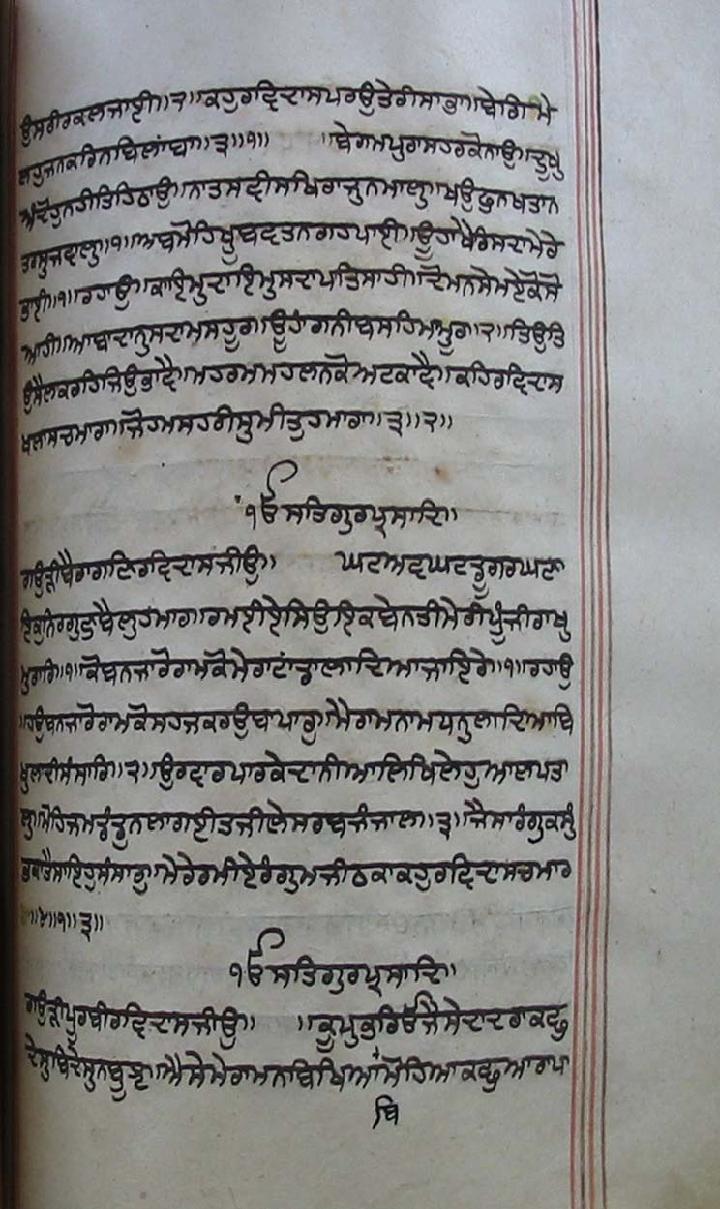 ਉਸਰੀਰਕਲਜਾਈ॥੨॥ਕਹੁਰਵਿਦਾਸਪਰਉਤੇਰੀਸਾਭ॥ਬੇਗਿਮਿ
ਲਹੁਜਨਕਰਿਨਬਿਲਾਂਬਾ॥੩॥੧॥ ॥ਬੇਗਮਪੁਰਾਸਹਰਕੋਨਾਉ॥ਦੂਖੁ
ਅੰਦੋਹੁਨਹੀਤਿਹਿਠਾਉ॥ਨਾਤਸਵੀਸਖਿਰਾਜੁਨਮਾਲੁ॥ਖਉਫੁਨਖਤਾਨ
ਤਰਸੁਜਵਾਲੁ॥੧॥ਅਬਮੋਹਿਖੂਬਵਤਨਗਹਪਾਈ॥ਊਹਾਂਖੈਰਿਸਦਾਮੇਰੇ
ਭਾਈ॥੧॥ਰਹਾਉ॥ਕਾਇਮੁਦਾਇਮੁਸਦਾਪਤਿਸਾਹੀ॥ਦੋਮਨਸੇਮਏਕੋਸੋ
ਆਹੀ॥ਆਬਾਦਾਨੁਸਦਾਮਸਹੂਰ॥ਊਹਾਂਗਨੀਬਸਹਿਮਾਮੂਰ॥੨॥ਤਿਉਤਿ
ਉਸੈਲਕਰਹਿਜਿਉਭਾਵੈ॥ਮਹਰਮਮਹਲਨਕੋਅਟਕਾਵੈ॥ਕਹਿਰਵਿਦਾਸ
ਖਲਾਸਚਮਾਰਾ॥ਜੋਹਮਸਹਰੀਸੁਮੀਤੁਹਮਾਰਾ॥੩॥੨॥
ੴਸਤਿਗੁਰਪ੍ਰਸਾਦਿ॥
ਗਉੜੀਬੈਰਾਗਣਿਰਵਿਦਾਸਜੀਉ॥ ਘਟਅਵਘਟਡੂਗਰਘਣਾ
ਇਕੁਨਿਰਗੁਣੁਬੈਲੁਹਮਾਰ॥ਰਮਈਏਸਿਉਇਕਬੇਨਤੀਮੇਰੀਪੂੰਜੀਰਾਖੁ
ਮੁਰਾਰਿ॥੧॥ਕੋਬਨਜਾਰੋਰਾਮਕੋਮੇਰਾਟਾਂਡਾਲਾਦਿਆਜਾਇਰੇ॥੧॥ਰਹਾਉ
ਹਉਬਨਜਾਰੋਰਾਮਕੋਸਹਜਕਰਉਬਪਾਰੁ॥ਮੈਰਾਮਨਾਮਧਨੁਲਾਦਿਆਬਿ
ਖੁਲਦੀਸੰਸਾਰਿ॥੨॥ਉਰਵਾਰਪਾਰਕੇਦਾਨੀਆਲਿਖਿਲੇਹੁਆਲਪਤਾ
ਲੁ॥ਮੋਹਿਜਮਡੰਡੁਨਲਾਗਈਤਜੀਲੇਸਰਬਜੰਜਾਲ॥੩॥ਜੈਸਾਰੰਗੁਕਸੁੰ
ਭਕਾਤੈਸਾਇਹੁਸੰਸਾਰੁ॥ਮੇਰੇਰਮਈਏਰੰਗੁਮਜੀਠਕਾਕਹੁਰਵਿਦਾਸਚਮਾਰ
॥੪॥੧॥੩॥
ੴਸਤਿਗੁਰਪ੍ਰਸਾਦਿ॥
ਗਉੜੀਪੂਰਬੀਰਵਿਦਾਸਜੀਉ॥ ॥ਕੂਪੁਭਰਿਓਜੈਸੇਦਾਦਰਾਕਛੁ
ਦੇਸੁਬਿਦੇਸੁਨਬੂਝ॥ਐਸੇਮੇਰਾਮਨਾਬਿਖਿਆਂਮੋਹਿਆਕਛੁਆਰਪਾ
ਬਿ